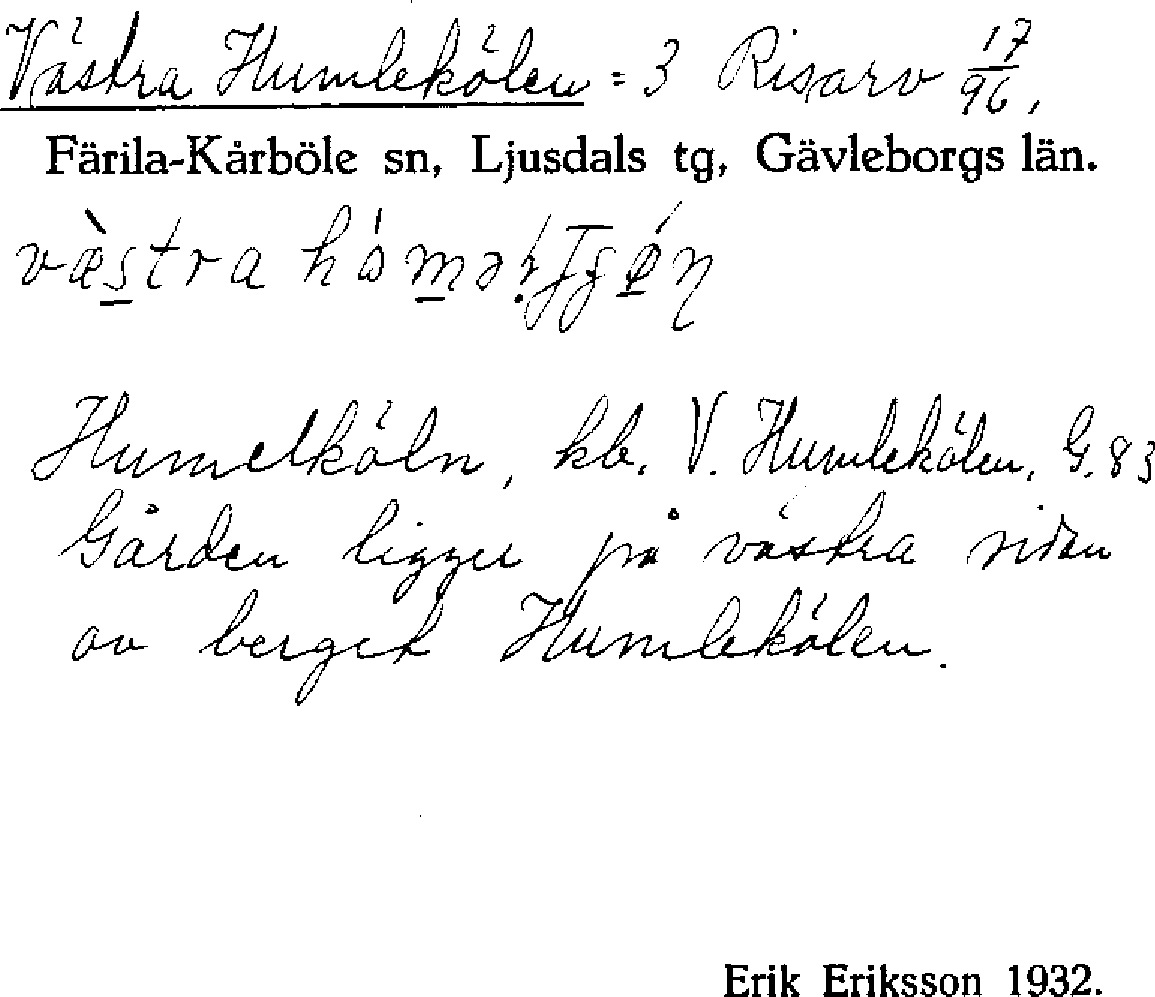 Västra Humlekölen = 3 Risarv 17/96,
Färila-Kårböle sn, Ljusdals tg, Gävleborgs län.
væ̀stra
Humelköln, kb. V. Humlekölen, G. 83
Gården ligger på västra sidan
av berget Humlekölen.
Erik Eriksson 1932.